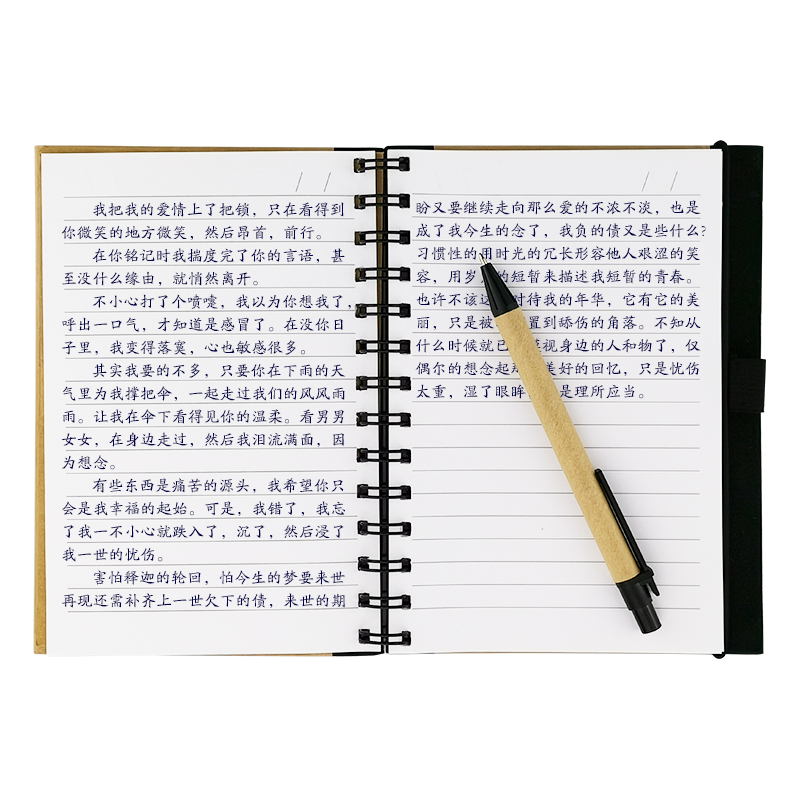 / /
我把我的爱情上了把锁，只在看得到
你微笑的地方微笑，然后昂首，前行。
在你铭记时我揣度完了你的言语，甚
至没什么缘由，就悄然离开。
不小心打了个喷嚏，我以为你想我了，
呼出一口气，才知道是感冒了。在没你日
子里，我变得落寞，心也敏感很多。
其实我要的不多，只要你在下雨的天
气里为我撑把伞，一起走过我们的风风雨
雨。让我在伞下看得见你的温柔。看男男
女女，在身边走过，然后我泪流满面，因
为想念。
有些东西是痛苦的源头，我希望你只
会是我幸福的起始。可是，我错了，我忘
了我一不小心就跌入了，沉了，然后浸了
我一世的忧伤。
害怕释迦的轮回，怕今生的梦要来世
再现还需补齐上一世欠下的债，来世的期
/ /
盼又要继续走向那么爱的不浓不淡，也是
成了我今生的念了，我负的债又是些什么?
习惯性的用时光的冗长形容他人艰涩的笑
容，用岁的短暂来描述我短暂的青春。
也许不该这对待我的年华，它有它的美
丽，只是被置到舔伤的角落。不知从
什么时候就已蔑视身边的人和物了，仅
偶尔的想念起美好的回忆，只是忧伤
太重，湿了眼眸是理所应当。